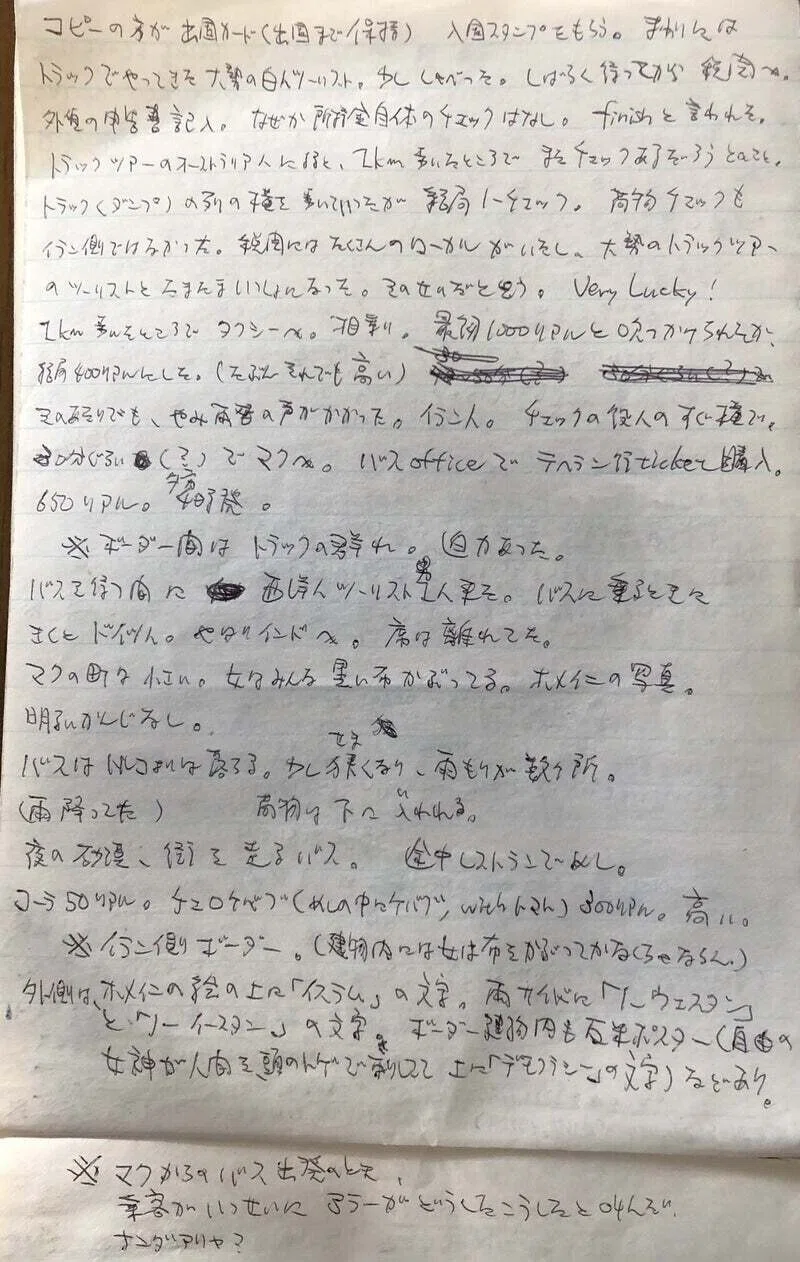 コピーの方が出国カード(出国まで保持) 入国スタンプをもらう。まわりには
トラックでやってきた大勢の白人ツーリスト。少ししゃべった。しばらく待ってから税関へ。
外貨の申告書記入。なぜか所持金自体のチェックはなし。finishと言われた。
トラックツアーのオーストラリア人によると、2km歩いたところでまたチェックあるだろうとのこと。
トラック(ダンプ)の列の横を歩いていったが結局ノーチェック。荷物チェックも
イラン側ではなかった。税関にはたくさんのローカルがいたし、大勢のトラックツアー
のツーリストとたまたまいっしょになった。そのせいだと思う。Very Lucky!
2km歩いたところでタクシーへ。相乗り。最初1000リアルと吹っかけられたが、
結局400リアルにした。(たぶんそれでも高い)
そのあたりでも、やみ両替の声がかかった。イラン人。チェックの役人のすぐ横で。
30分ぐらい(?)でマクへ。バスofficeでテヘラン行ticket購入。
650リアル。夕方4時発。
※ボーダー間はトラックの群れ。迫力あった。
バスを待つ間に西洋人ツーリスト男2人来た。バスに乗るときに
きくとドイツ人。やはりインドへ。席は離れてた。
マクの町は小さい。女はみんな黒い布かぶってる。ホメイニの写真。
明るいかんじなし。
バスはトルコよりは落ちる。少しせまくなり、雨もりが数ヶ所。
(雨降ってた) 荷物は下に入れれる。
夜の砂漠、街を走るバス。途中レストランでめし。
コーラ50リアル。チェロケバブ(めしの中にケバブ, withトマト)300リアル。高い。
※イラン側ボーダー。(建物内には女は布をかぶってかなくちゃならん。)
外側は、ホメイニの絵の上に「イスラム」の文字。両サイドに「ノーウェスタン」
と「ノーイースタン」の文字。ボーダー建物内も反米ポスター(自由の
女神が人間を頭のトゲで刺してて上に「デモクラシー」の文字)などあり。
※マクからのバス出発のとき、
乗客がいっせいにアラーがどうしたこうしたと叫んだ。
ナンダアリャ?